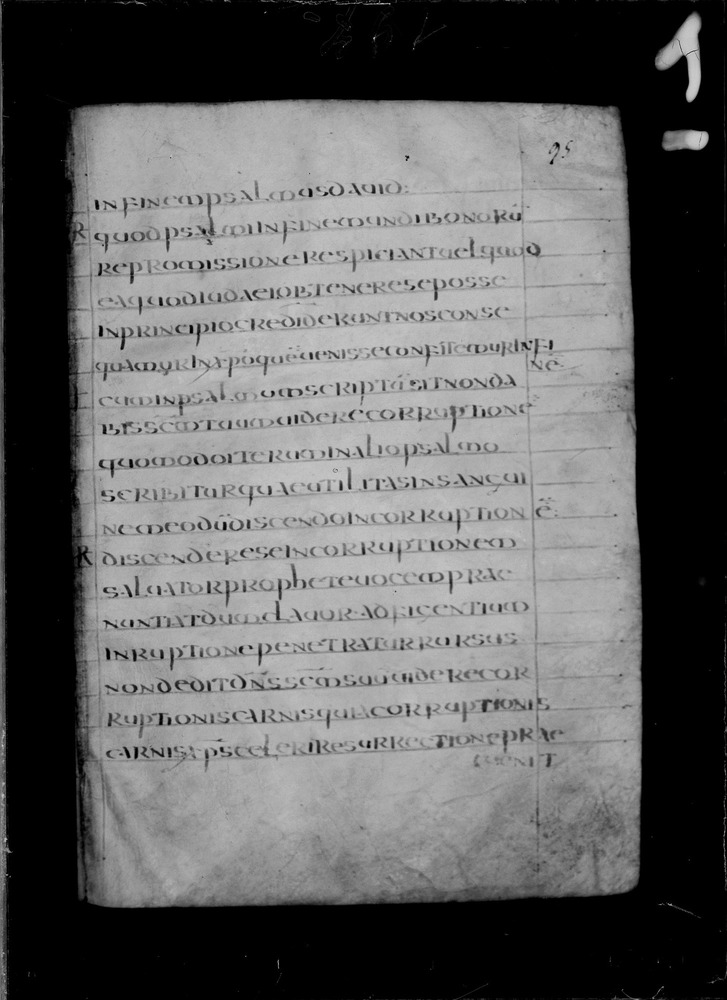 95
INFINEMPSALMUSDAUID:
R QUODPSALMIINFINEMUNDIBONORŪ
REPROMISSIONERESPICIANTUELQUOD
EAQUODIUDAEIOBTENERESEPOSSE
INPRINCIPIOCREDIDERUNTNOSCONSE
QUAMURINXPOQUĒUENISSECONFITEMURINFI
NĒ·
CUMINPSALMUMSCRIPTŪSITNONDA
BISSCMTUUMUIDERECORRUPTIONĒ
QUOMODOITERUMINALIOPSALMO
SCRIBITURQUAEUTILITASINSANGUI
NEMEODŪDISCENDOINCORRUPTIONĒ:
R DISCENDERESEINCORRUPTIONEM
SALUATORPROPHETEUOCEMPRAE
NUNTIATDUMCLAUOR·ADFICENTIUM
INRUPTIONEPENETRATURRURSUS
NONDEDITDN̄SSCM̄SUUUIDERECOR
RUPTIONISCARNISQUIACORRUPTIONIS
CARNISXP̄SCELERIRESURRECTIONEPRAE
UENIT